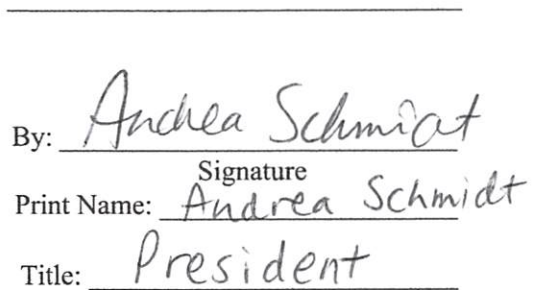 By: Andrea Schmidt
Signature
Print Name: Andrea Schmidt
Title: President